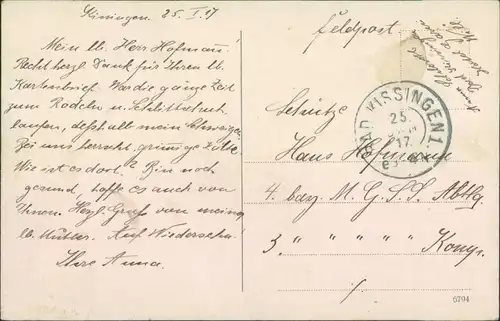 Kissingen. 25. I. 17
Mein lb. Herr Hofmann!
Recht herzl. Dank für Ihren lb.
Kartenbrief. War die ganze Zeit
zum Rodeln u. Schlittschuh
laufen, deßhalb mein Schweigen.
Bei uns herrscht grimmige Kälte.
Wie ist es dort? Bin noch
gesund, hoffe es auch von
Ihnen. Herzl. Grüße von meiner
lb. Mutter. Auf Wiedersehn!
Ihre Anna.
Feldpost.
BAD KISSINGEN 1.
25.
17.
Schütze
Hans Hofmann
4. bay. M. G. S. S. Abtlg.
3. " " " " Komp.
6794